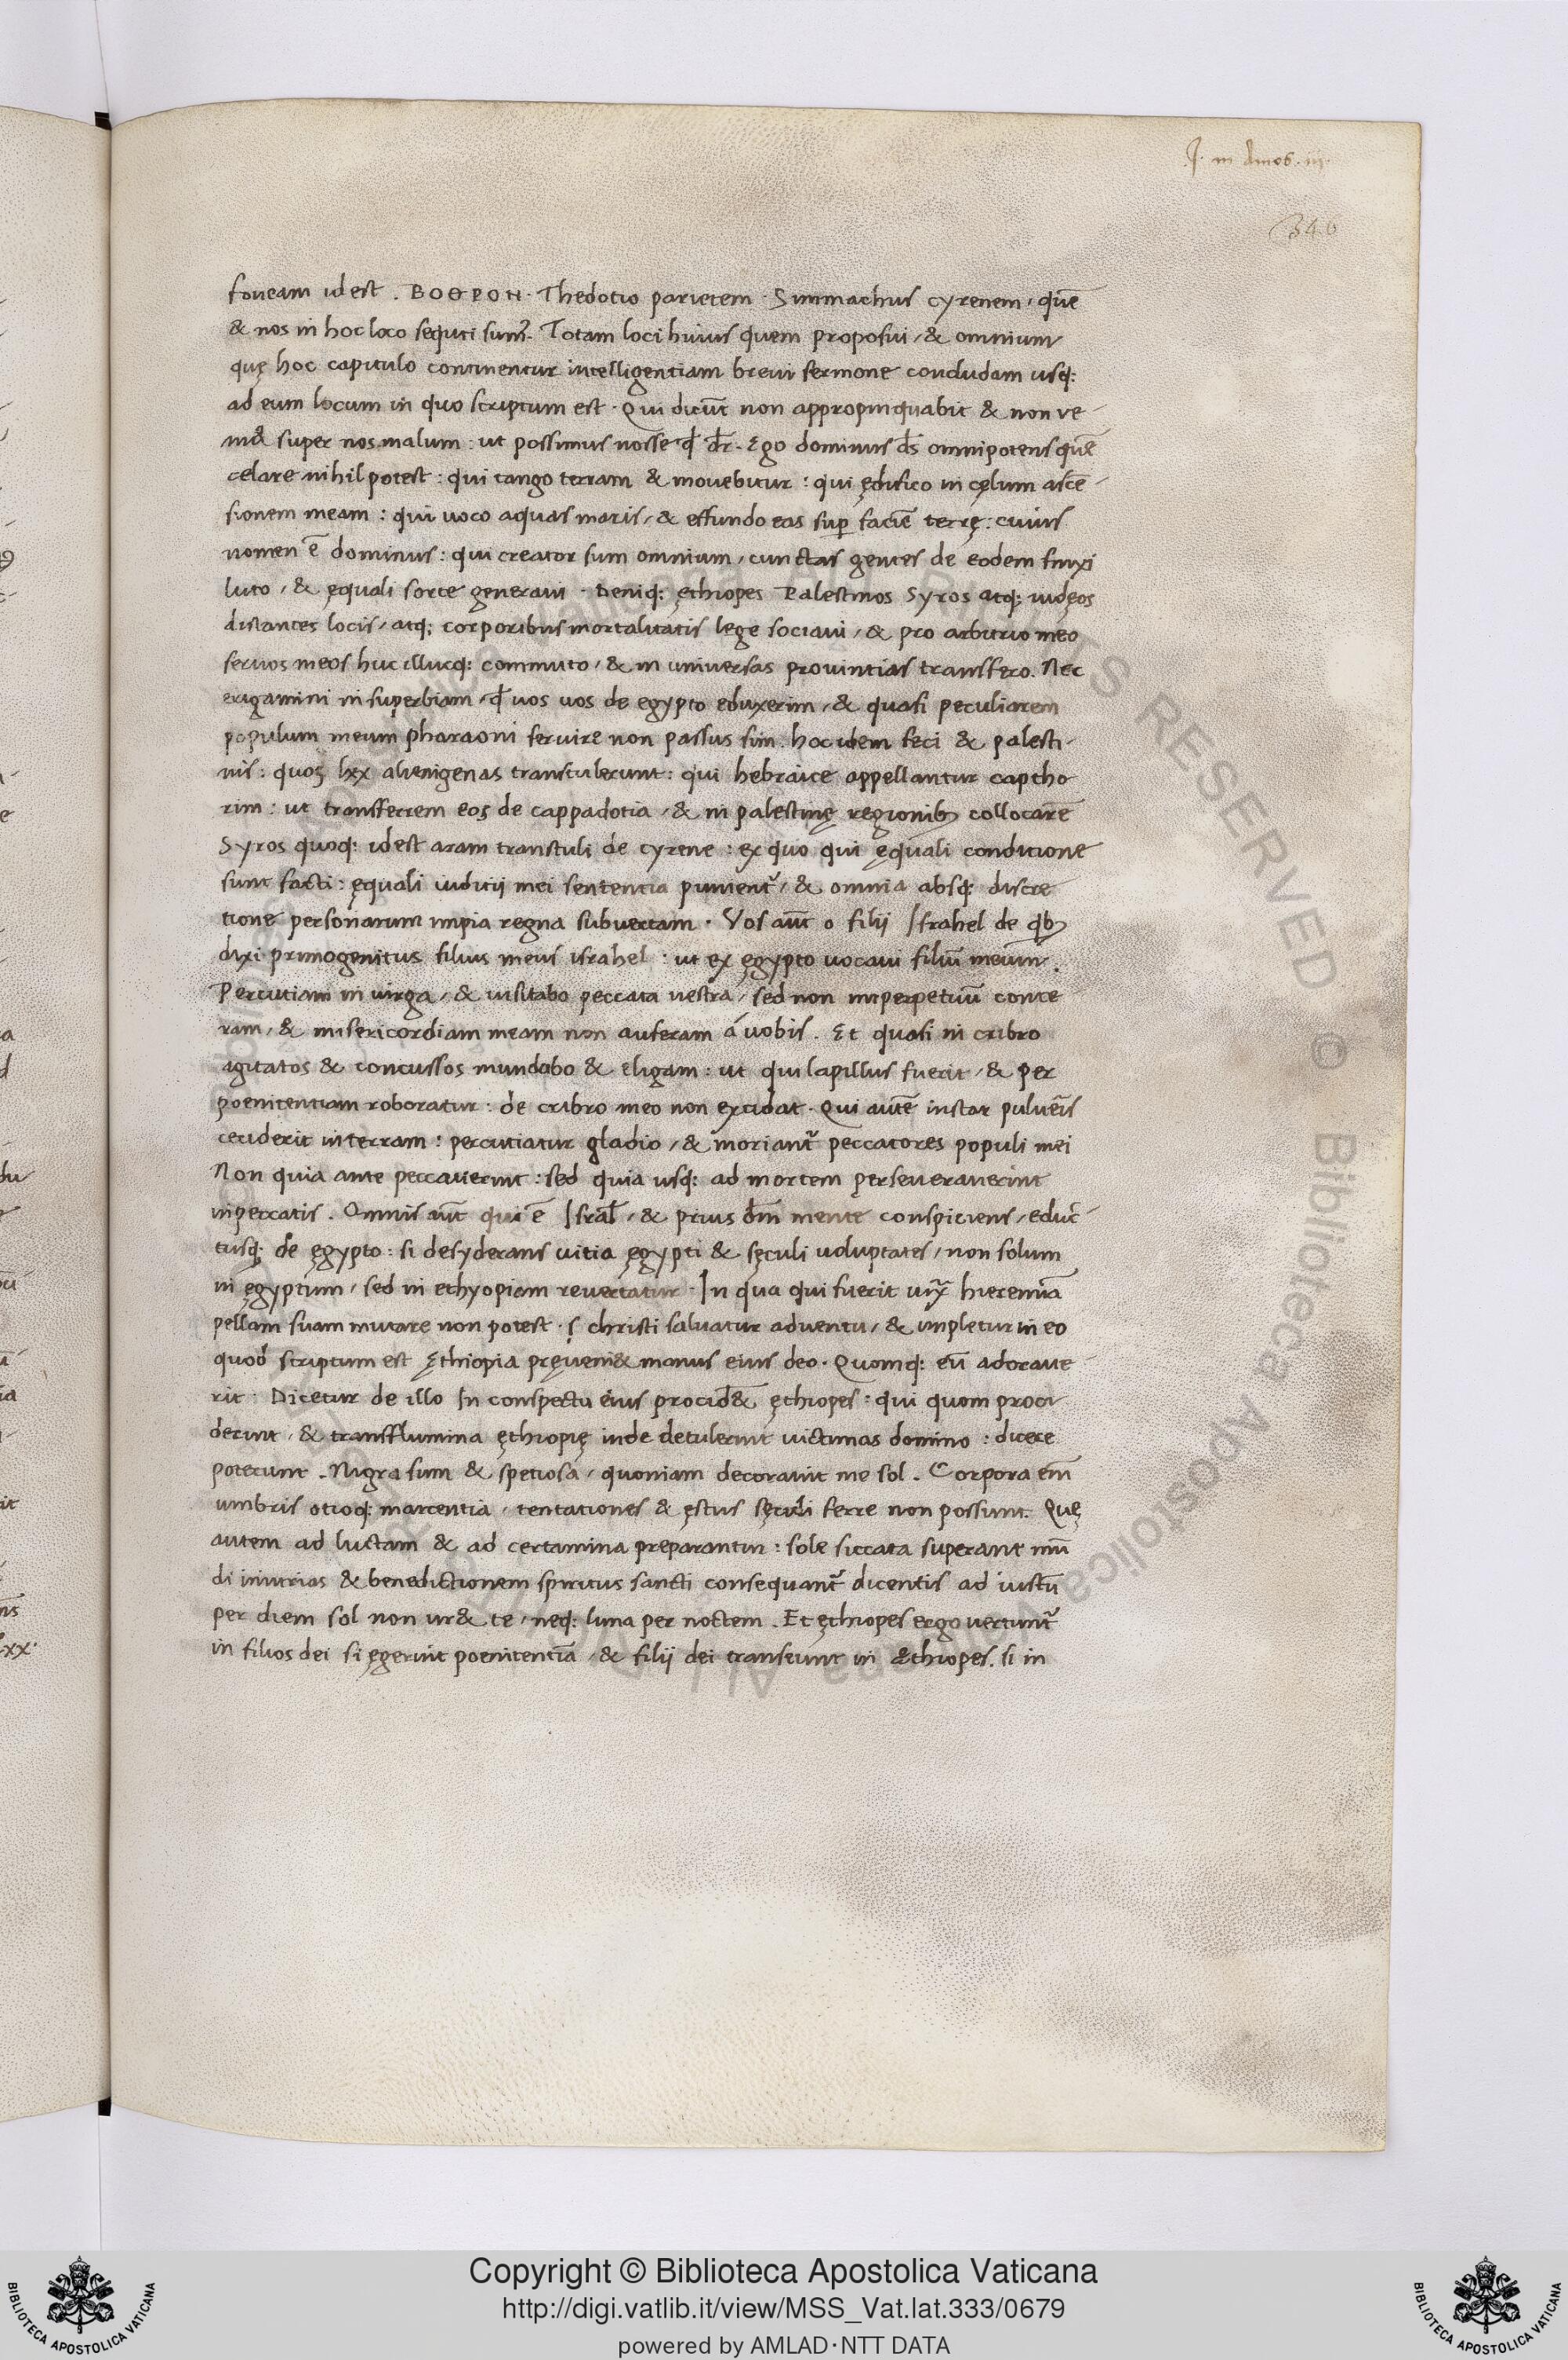 J. in Amos. iii.
346
foveam id est . ΒΟΘΡΟΝ · Thedotio parietem · Simmachus cyrenem, quē
& nos in hoc loco sequti sumꝰ. Totam loci huius quem proposui, & omnium
quę hoc capitulo continentur intelligentiam brevi sermone concludam usq;
ad eum locum in quo scriptum est · Qui dicūt non appropinquabit & non ve-
niet super nos malum : ut possimus nosse qđ dr̄. Ego dominus ds̄ omnipotens quē
celare nihil potest : qui tango terram & movebitur : qui ędifico in cęlum ascē-
sionem meam : qui uoco aquas maris, & effundo eas sup̱ faciē terrę : cuius
nomen ē dominus : qui creator sum omnium, cunctas gentes de eodem finxi
luto, & ęquali sorte generavi · Deniq; ęthiopes Palestinos Syros atq; iudęos
distantes locis, atq; corporibus mortalitatis lege sociavi, & pro arbitrio meo
servos meos huc illucq; commuto, & in universas provintias transfero. Nec
erigamini in superbiam, qđ uos uos de egypto eduxerim, & quasi peculiarem
populum meum pharaoni servire non passus sim. hoc idem feci & palesti-
nis : quos lxx alienigenas transtulerunt : qui hebraice appellantur captho
rim : ut transferrem eos de cappadotia, & in palestinę regionibꝫ collocarē
Syros quoq; id est aram transtuli de cyrene : ex quo qui ęquali conditione
sunt facti : ęquali iuditij mei sententia punient᷑, & omnia absq; discre
tione personarum impia regna subvertam · Vos aūt o filij Israhel de qbꝫ
dixi primogenitus filius meus israhel : ut ex ęgypto uocavi filiū meum.
Percutiam in virga, & visitabo peccata vestra, sed non inperpetuū conte
ram, & misericordiam meam non auferam á vobis . Et quasi in cribro
agitatos & concussos mundabo & eligam : ut qui lapillus fuerit, & per
poenitentiam roboratur : de cribro meo non excidat · Qui autē instar pulvēis
ceciderit in terram : percutiatur gladio, & moriant᷑ peccatores populi mei
Non quia ante peccaverint : sed quia usq; ad mortem perseveraverint
inpeccatis . Omnis aūt qui ē Isral̄, & prius dm̄ mente conspiciens, educ-
tusq; de ęgypto : si desyderans vitia ęgypti & sęculi voluptates, non solum
in ęgyptum, sed in ethyopiam revertatur · In qua qui fuerit iuxͣ hieremiā
pellam suam mutare non potest · s̨ christi salvatur adventu, & impletur in eo
quod scriptum est Ęthiopia pręveni& manus eius deo · Quomq; eū adorave-
rit : Dicetur de illo In conspectu eius procidē& ęthiopes : qui quom proci
derint, & transflumina ęthiopię inde detulerint victimas domino : dicere
poterunt . Nigra sum & spetiosa, quoniam decoravit me sol . Corpora em̄
umbris otioq; marcentia, tentationes & ęstus sęculi ferre non possunt. Quę
autem ad luctam & ad certamina preparantur : sole siccata superant mū
di iniurias & benedictionem spiritus sancti consequant᷑ dicentis ad iustū
per diem sol non ur& te, neq; luna per noctem . Et ęthiopes ergo vertunt᷑
in filios dei si ęgerint poenitentiā, & filij dei transeunt in Æthiopes. si in
Copyright © Biblioteca Apostolica Vaticana
http://digi.vatlib.it/view/MSS_Vat.lat.333/0679
powered by AMLAD·NTT DATA